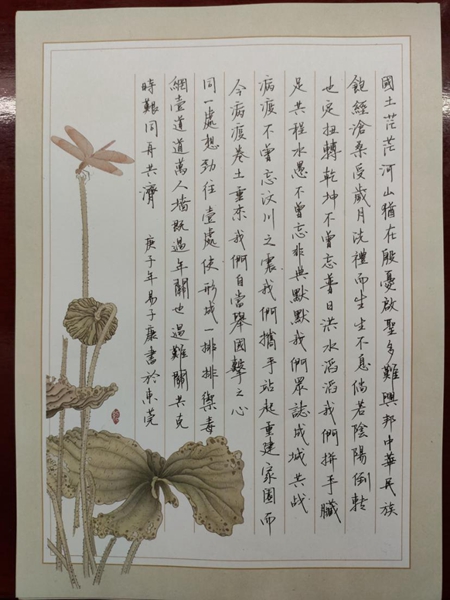 國土茫茫河山猶在殷憂啟聖多難興邦中華民族
飽經滄桑受歲月洗禮而生生不息倘若陰陽倒轉
也定扭轉乾坤不曾忘昔日洪水滔滔我們拼手臟
足共程水愚不曾忘非典默默我們眾誌成城共战
病疫不曾忘汶川之震我們攜手站起重建家園而
今病疫卷土重來我們自當舉國擊之心
同一處想勁往壹處使形成一排排禦毒
網壹道道萬人墻既過年關也過難關共克
時艱同舟共濟 庚子年易子康書於東莞